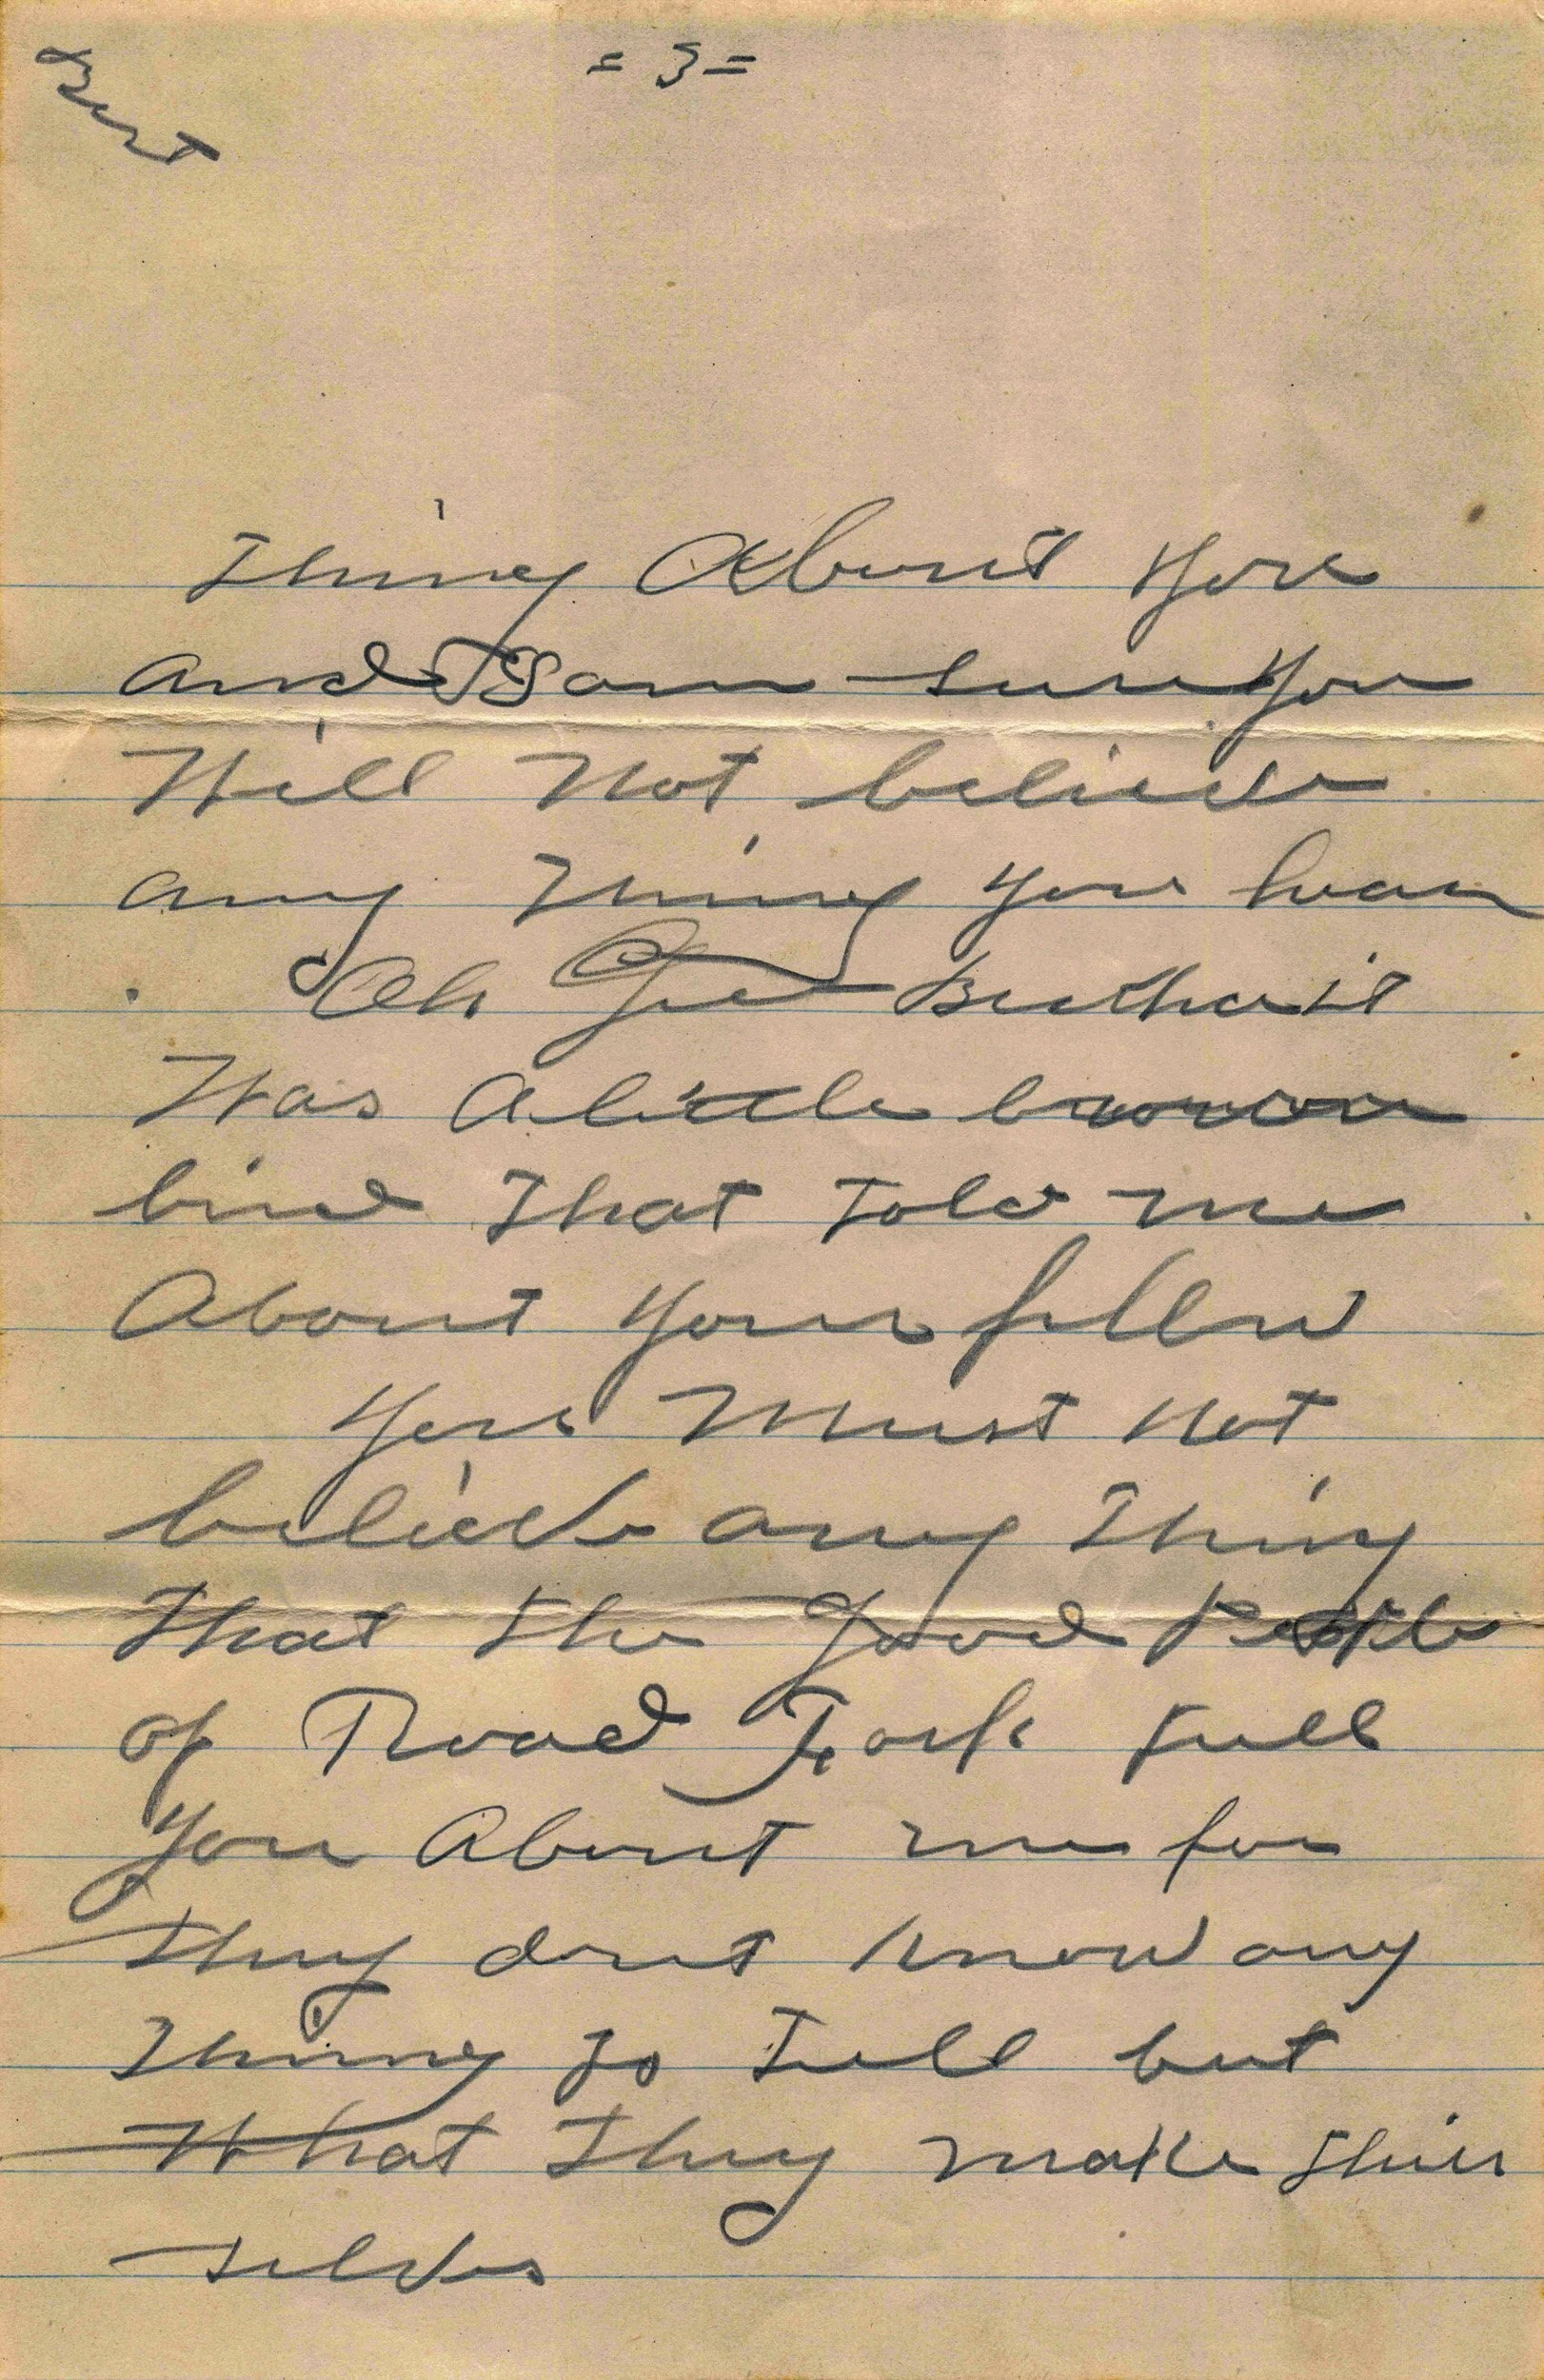 Bert
= 3 =
Thing About You
and I am sure You
Will Not believe
any Thing you hear
Oh Gee but it
Was A little brown
bird That Told me
About Your fellow
You Must Not
believe any Thing
That the Good People
of Road Fork tell
You About me for
They dont know any
Thing To Tell but
What They make their
selves